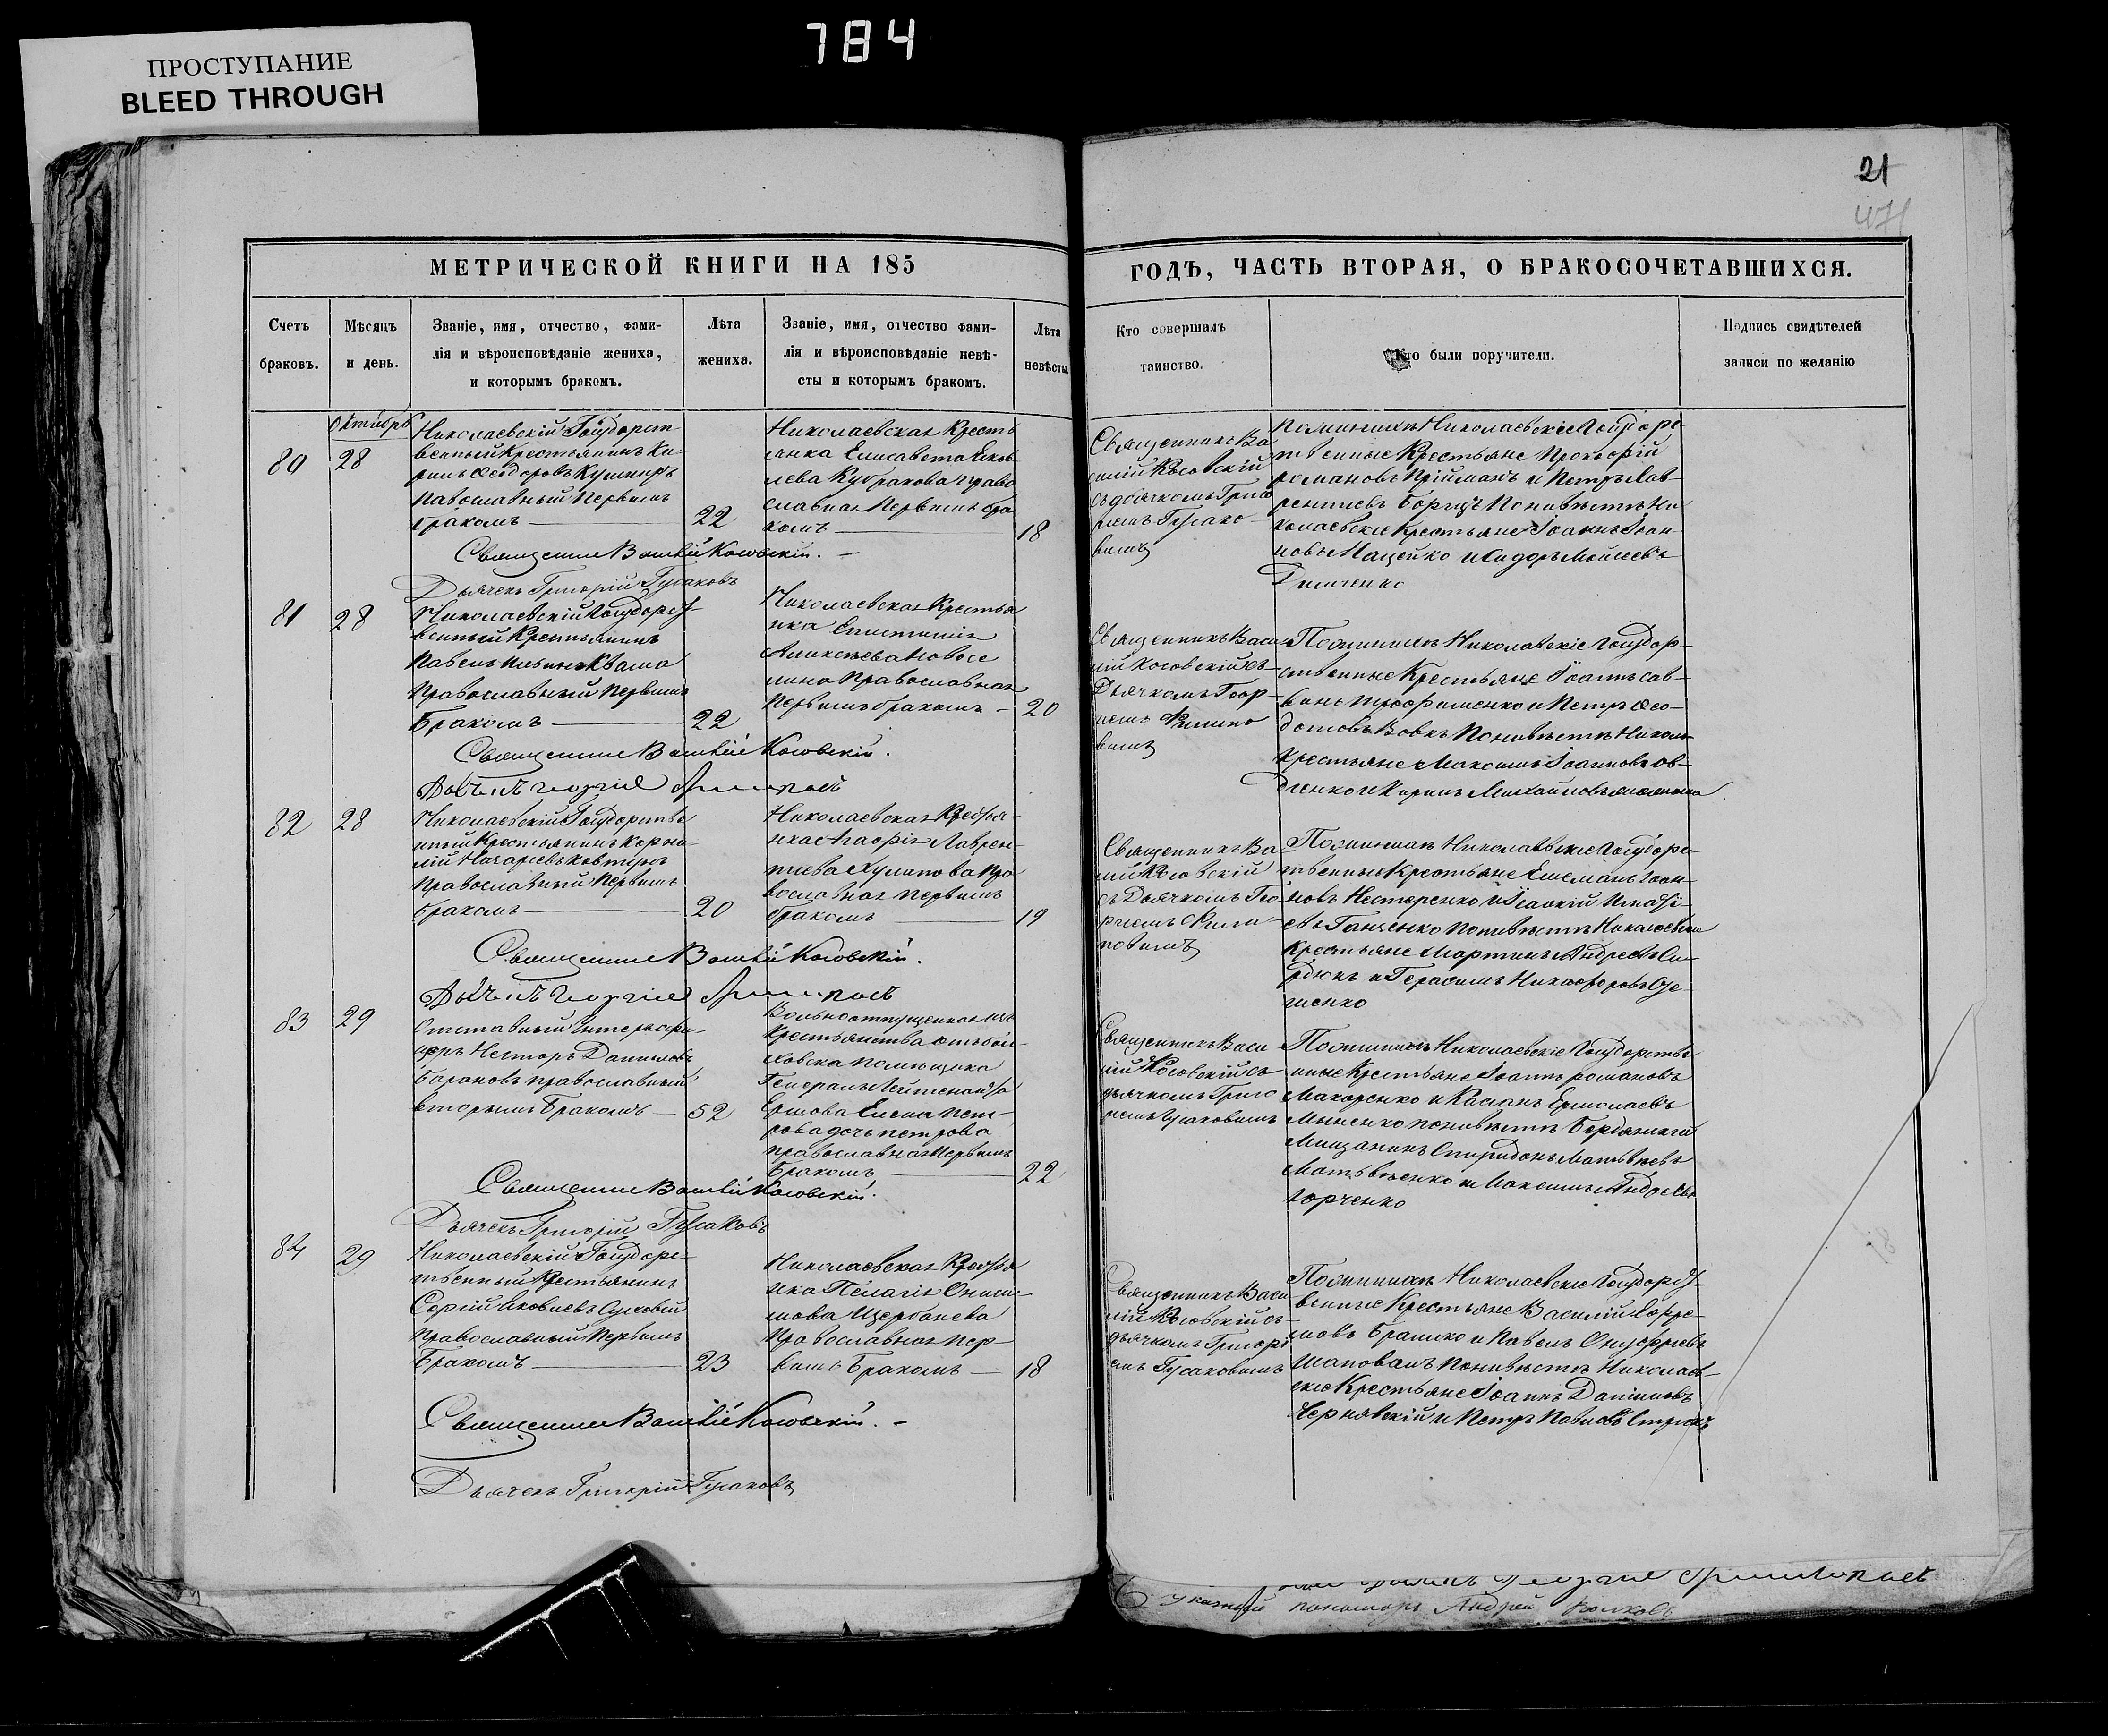 784
ПРОСТУПАНИЕ
BLEED THROUGH
21
471
МЕТРИЧЕСКОЙ КНИГИ НА 185
ГОДѢ, ЧАСТЬ ВТОРАЯ, О БРАКОСОЧЕТАВШИХСЯ.
Счетъ
браковъ.
Мѣсяцъ
и день.
Званіе, имя, отчество, фами-
лія и вѣроисповѣданіе жениха,
и которымъ бракомъ.
Лѣта
жениха.
Званіе, имя, отчество фами-
лія и вѣроисповѣданіе невѣ-
сты и которымъ бракомъ.
Лѣта
невѣсты.
Кто совершалъ
таинство.
Кто были поручители.
Подпись свидѣтелей
записи по желанію
Октябрь
80
28
Николаевскій Государст
венный крестьянинъ Ки
рилъ Ѳеодоровъ Кушниръ
Павославный Первымъ
бракомъ
22
Николаевская Кресть
янка Елисавета Яков
лева Кудракова право
славная Первымъ бра
комъ
18
Священникъ Ва
силій Косовскій
съ дьячкомъ Григо
ріемъ Гусако
вымъ
Поженихѣ Николаевскіе Государс
твенные Крестьяне Прокофій
романовъ Пріймакъ и Петръ Лав-
рентіевъ Борщъ Поневѣстѣ Ни
колаевскіе Крестьяне Іоаннъ Іоан
новъ Мацейко и Сидоръ Моисеевъ
Священникъ Василій Косовскій.
Дьячекъ Григорій Гусаковъ
81
28
Николаевскій Государст
венный Крестьянинъ
Павелъ Ильинъ Кваша
Православный Первымъ
Бракомъ
22
Николаевская Крестья
нка Епистимія
Алексѣева Новосе
лина Православная
Первымъ бракомъ
20
Священникъ Васи
лій Косовскій съ
Дьячкомъ Геор
гіемъ Филипо
вымъ
Поженихѣ Николаевскіе Государ-
ственные Крестьяне Іоаннъ Сав-
винъ Трофименко и Петръ Ѳео-
дотовъ Вовкъ Поневѣстѣ Никол
Крестьяне Максимъ Іоанновъ Ов-
Священникъ Василій Косовскій.
82
28
Николаевскій Государстве
нный Крестьянинъ Корни
лій Назаріевъ Ковтунъ
Православный Первымъ
бракомъ
20
Николаевская Крестья-
нка Марфа Лаврен
тіева Кулинова Пра
вославная Первымъ
бракомъ
19
Священникъ Ва
лій Косовскій
съ Дьячкомъ Гео
ргіемъ Фили
повымъ
Поженихѣ Николаевскіе Государс
твенные Крестьяне
новъ Нестеренко и
евъ Ганченко Поневѣстѣ Николаевскіе
Крестьяне Мартинъ Андреевъ Си-
рдюкъ и Герасимъ Никифоровъ
Священникъ Василій Косовскій.
83
29
Отставный Унтеръ офи-
церъ Несторъ Даниловъ
Барановъ православный
вторымъ Бракомъ
52
Вольноотпущенная изъ
Крестьянства
помѣщика
Генералъ Лейтенанта
Ершова Елена Пет-
рова дочь Петрова
православная Первымъ
Бракомъ
22
Священникъ Васи
лій Косовскій съ
дьячкомъ Григо
ріемъ Гусаковымъ
Поженихѣ Николаевскіе Государстве
нные Крестьяне Іоаннъ романовъ
Макаренко и Касіанъ Ермолаевъ
Мыненко поневѣстѣ Бердянскій
Мищанинъ Спиридонъ Матвѣевъ
Матвѣенко и Максимъ Андреевъ
Горченко
Священникъ Василій Косовскій.
Дьячекъ Григорій Гусаковъ
84
29
Николаевскій Государс
твенный Крестьянинъ
Сергій Яковлевъ Суковій
Православный Первымъ
Бракомъ
23
Николаевская Крестья
нка Пелагія Ониси-
мова Щербанева
Православная Пер-
вымъ Бракомъ
18
Священникъ Васи
лій Косовскій съ
дьячкомъ Григорі
емъ Гусаковымъ
Поженихѣ Николаевскіе Государст
венные Крестьяне Василій Ефре-
мовъ Брашко и Павелъ Онуфріевъ
Шаповалъ Поневѣстѣ Николаев-
скіе Крестьяне Іоаннъ Даниловъ
Чернявскій и Петръ Павловъ
Священникъ Василій Косовскій.
Дьячекъ Григорій Гусаковъ
пономарь Андрей Волковъ